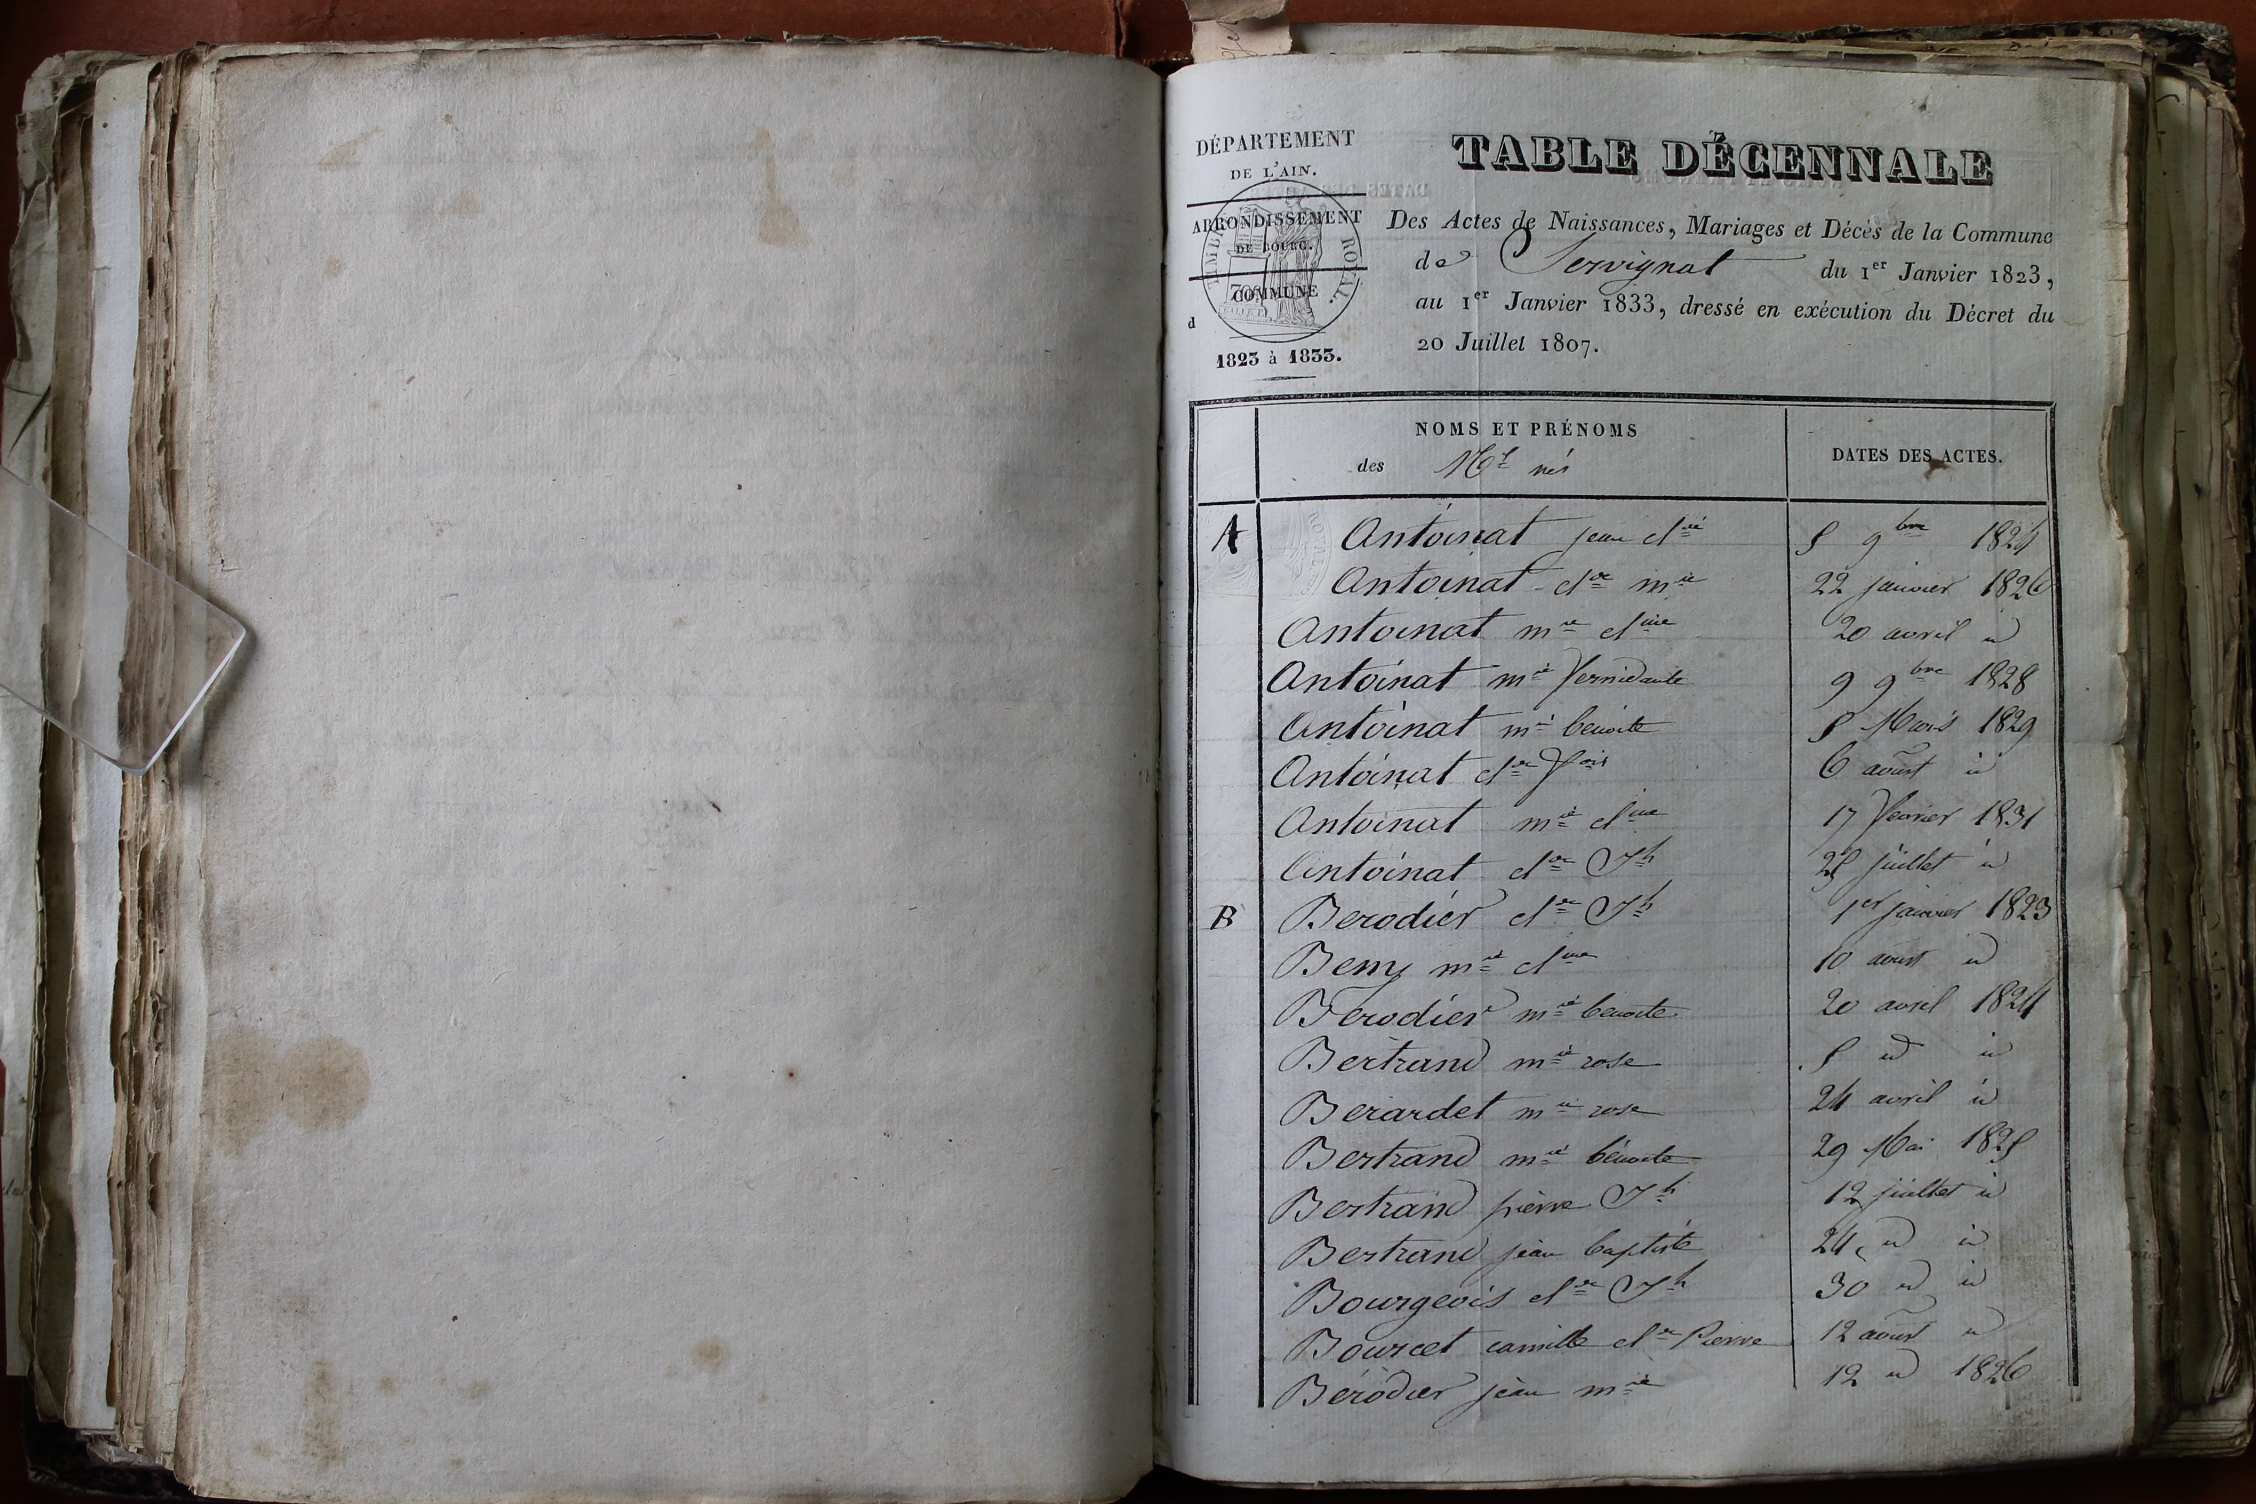 DÉPARTEMENT
DE L'AIN.
ARRONDISSEMENT
DE BOURG.
COMMUNE
d
1823 à 1833.
TIMBRE ROYAL.
TABLE DÉCENNALE
Des Actes de Naissances, Mariages et Décès de la Commune
de Servignat du 1er Janvier 1823,
au 1er Janvier 1833, dressé en exécution du Décret du
20 Juillet 1807.
NOMS ET PRÉNOMS
des nés
DATES DES ACTES.
A Antoinat jean clde 5 9bre 1824
Antoinat clde mie 22 janvier 1826
Antoinat mie cline 20 avril id
Antoinat mie 9 9bre 1828
Antoinat mie benoite 5 Mars 1829
Antoinat clde fois 6 aoust id
Antoinat mie cline 17 fevrier 1831
Antoinat clde Jh 25 juillet id
B Berodier clde Jh 1er janvier 1823
Beny mie cline 10 aoust id
Berodier mie benoite 20 avril 1824
Bertrand mie rose 5 id id
Berardet mie rose 24 avril id
Bertrand mie bénoite 29 Mai 1825
Bertrand pierre Jh 12 juillet id
Bertrand jean baptiste 24 id id
Bourgeois clde Jh 30 id id
Bourcet camille clde Pierre 12 aoust id
Bérodier jean mie 12 id 1826